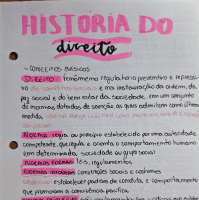 HISTORIA DO
direito
CONCEITOS BÁSICOS
DIREITO: fenômeno regulatório preventivo e repressi-
vo de conflitos sociais e na instauração da ordem, da
paz social e do bem estar das sociedade, em um conjunto
de normas dotadas de sanção as quais admitem como última
medida
NORMA: regra ou princípio estabelecido por uma autoridade
competente, que regula e orienta o comportamento humano
em determinada sociedade ou grupo social
NORMAS FORMAIS: leis, regulamentos,
NORMAS INFORMAIS: convenções sociais e costumes
OBJETIVO: estabelecer padrões de conduta, e comportamento
que promovam convivência pacífica.